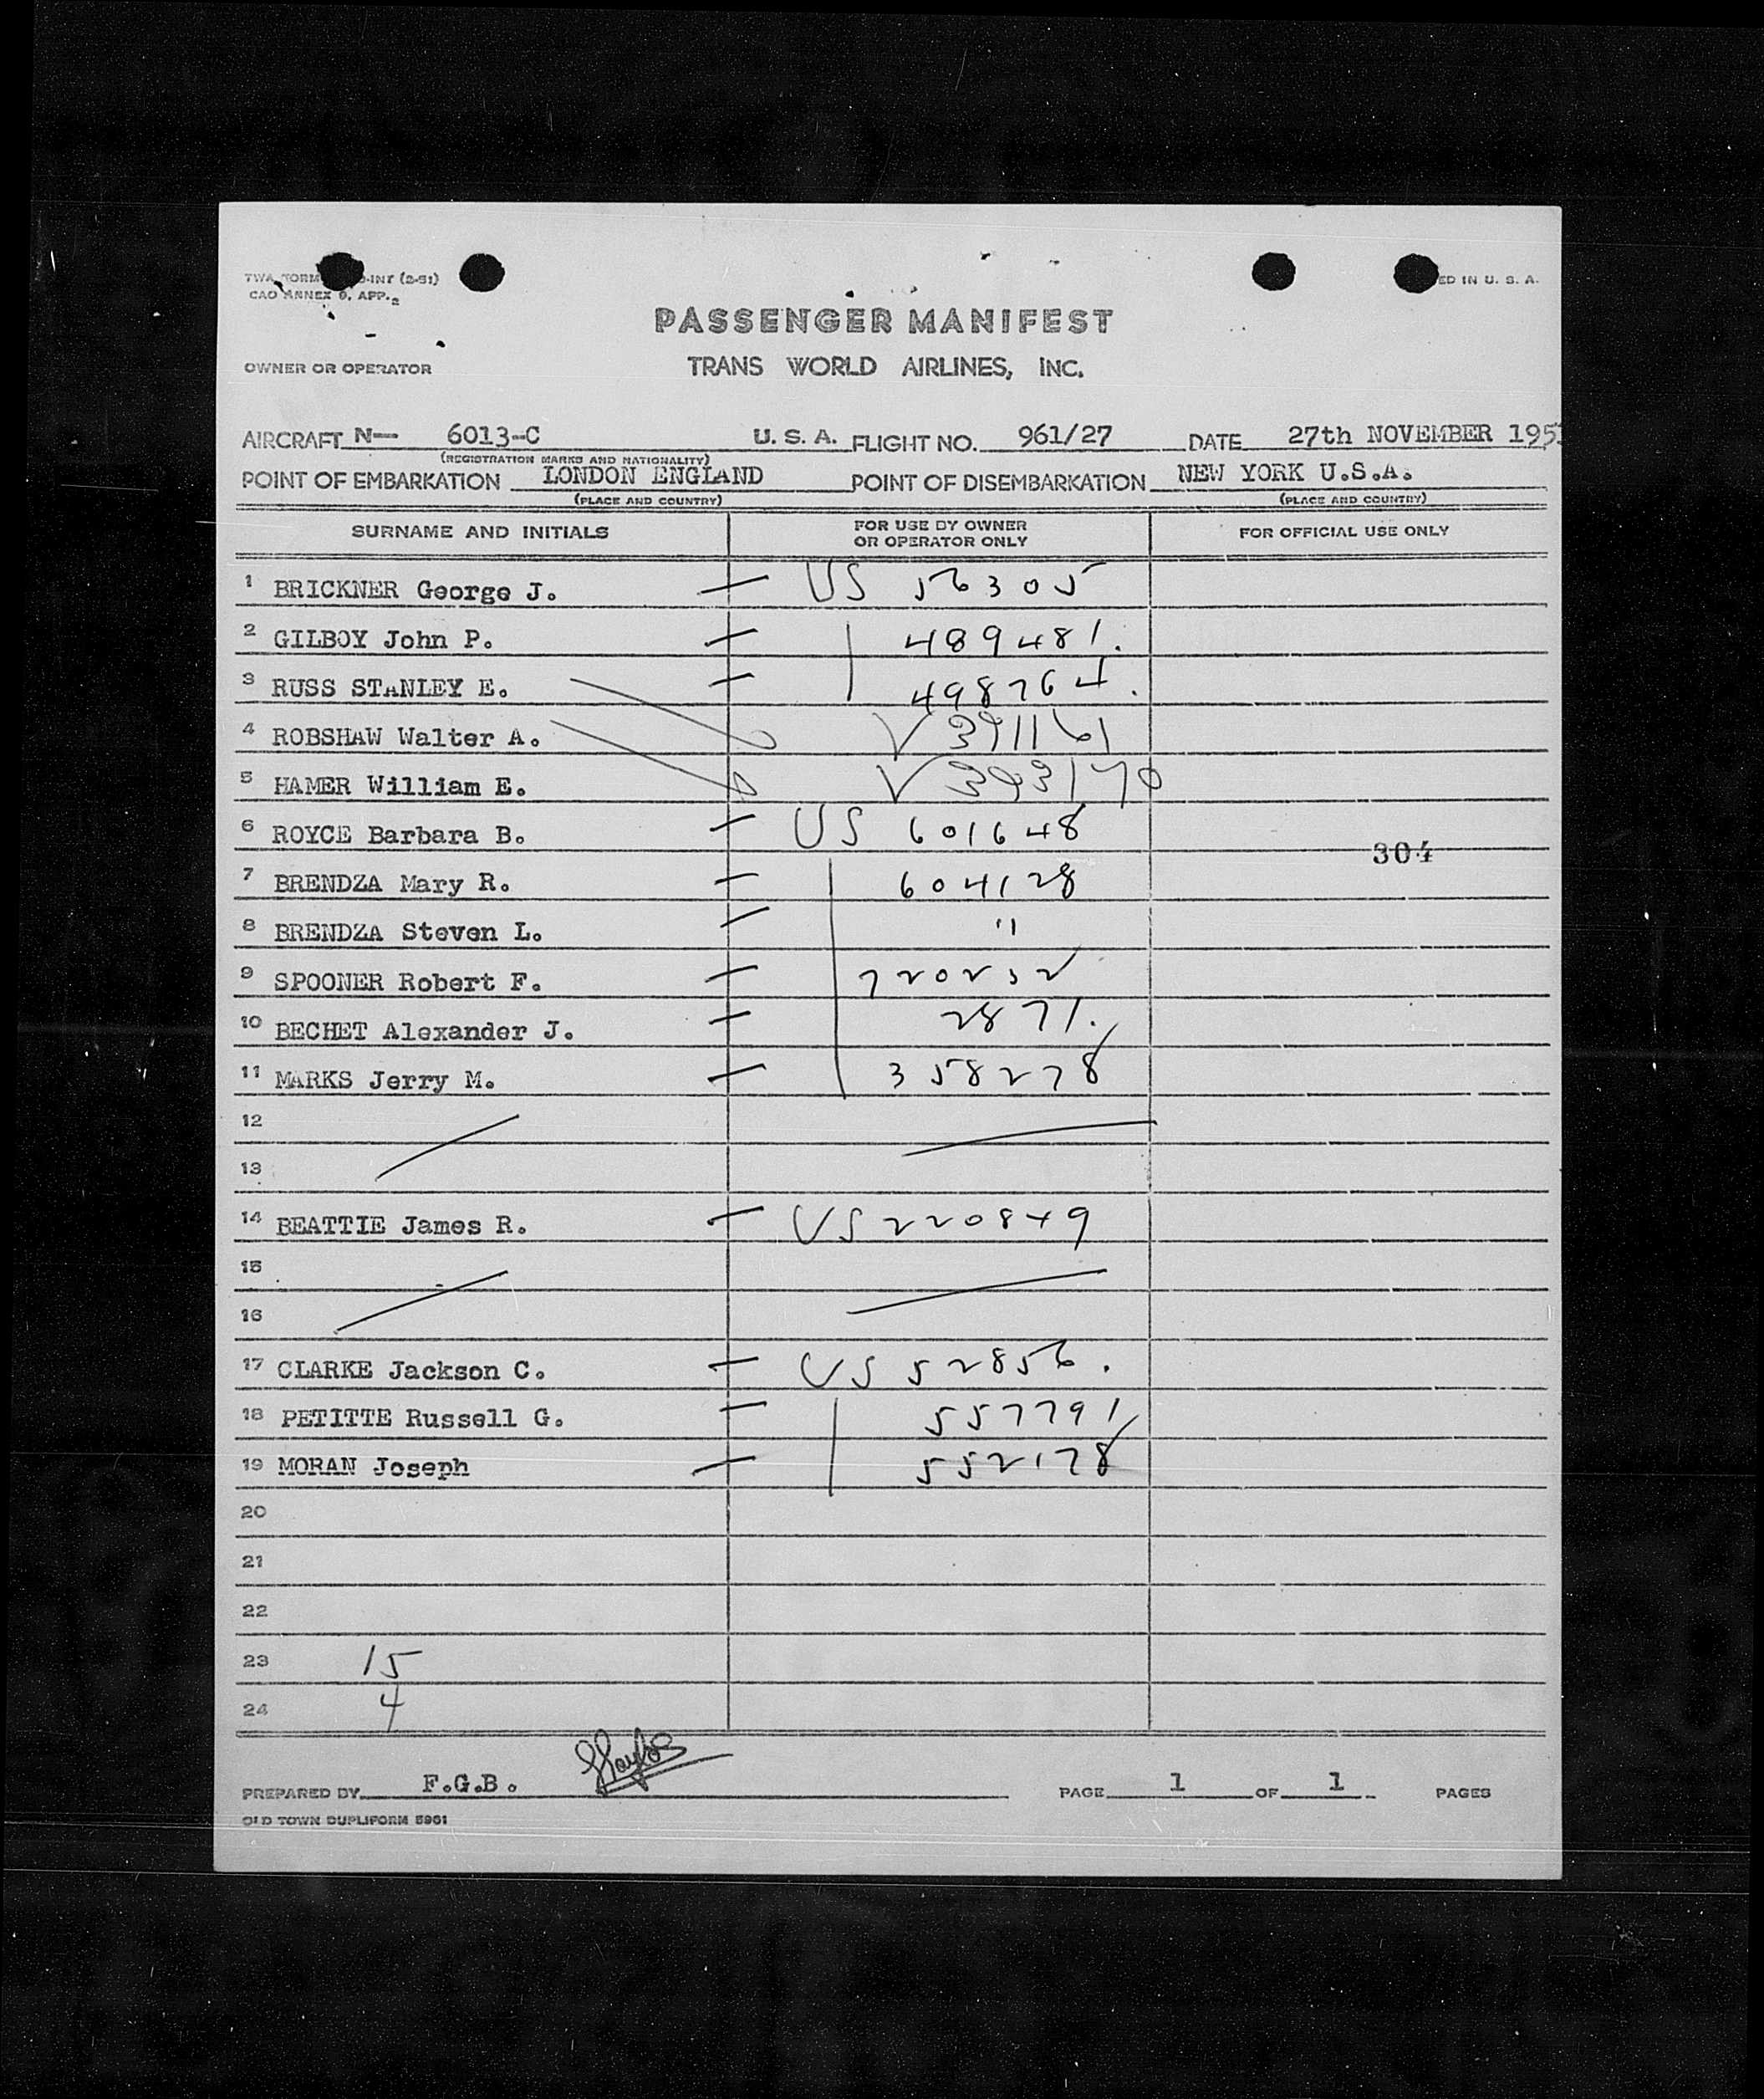 TWA FORM -INT (2-51)
CAO ANNEX 9, APP. 2
ED IN U. S. A.
PASSENGER MANIFEST
OWNER OR OPERATOR TRANS WORLD AIRLINES, INC.
AIRCRAFT N— 6013-C U. S. A. FLIGHT NO. 961/27 DATE 27th NOVEMBER 195
(REGISTRATION MARKS AND NATIONALITY)
POINT OF EMBARKATION LONDON ENGLAND POINT OF DISEMBARKATION NEW YORK U.S.A.
(PLACE AND COUNTRY) (PLACE AND COUNTRY)
SURNAME AND INITIALS FOR USE BY OWNER OR OPERATOR ONLY FOR OFFICIAL USE ONLY
1 BRICKNER George J. — US 56305
2 GILBOY John P. — 489481.
3 RUSS STANLEY E. — 498764.
4 ROBSHAW Walter A. √ 391161
5 HAMER William E. √ 393170
6 ROYCE Barbara B. — US 601648
304
7 BRENDZA Mary R. — 604128
8 BRENDZA Steven L. — "
9 SPOONER Robert F. — 720232
10 BECHET Alexander J. — 2871.
11 MARKS Jerry M. — 358278
12
13
14 BEATTIE James R. — US 220849
15
16
17 CLARKE Jackson C. — US 52856.
18 PETITTE Russell G. — 557791
19 MORAN Joseph — 552178
20
21
22
23 15
24 4
PREPARED BY F.G.B. PAGE 1 OF 1 PAGES
OLD TOWN DUPLIFORM 5961